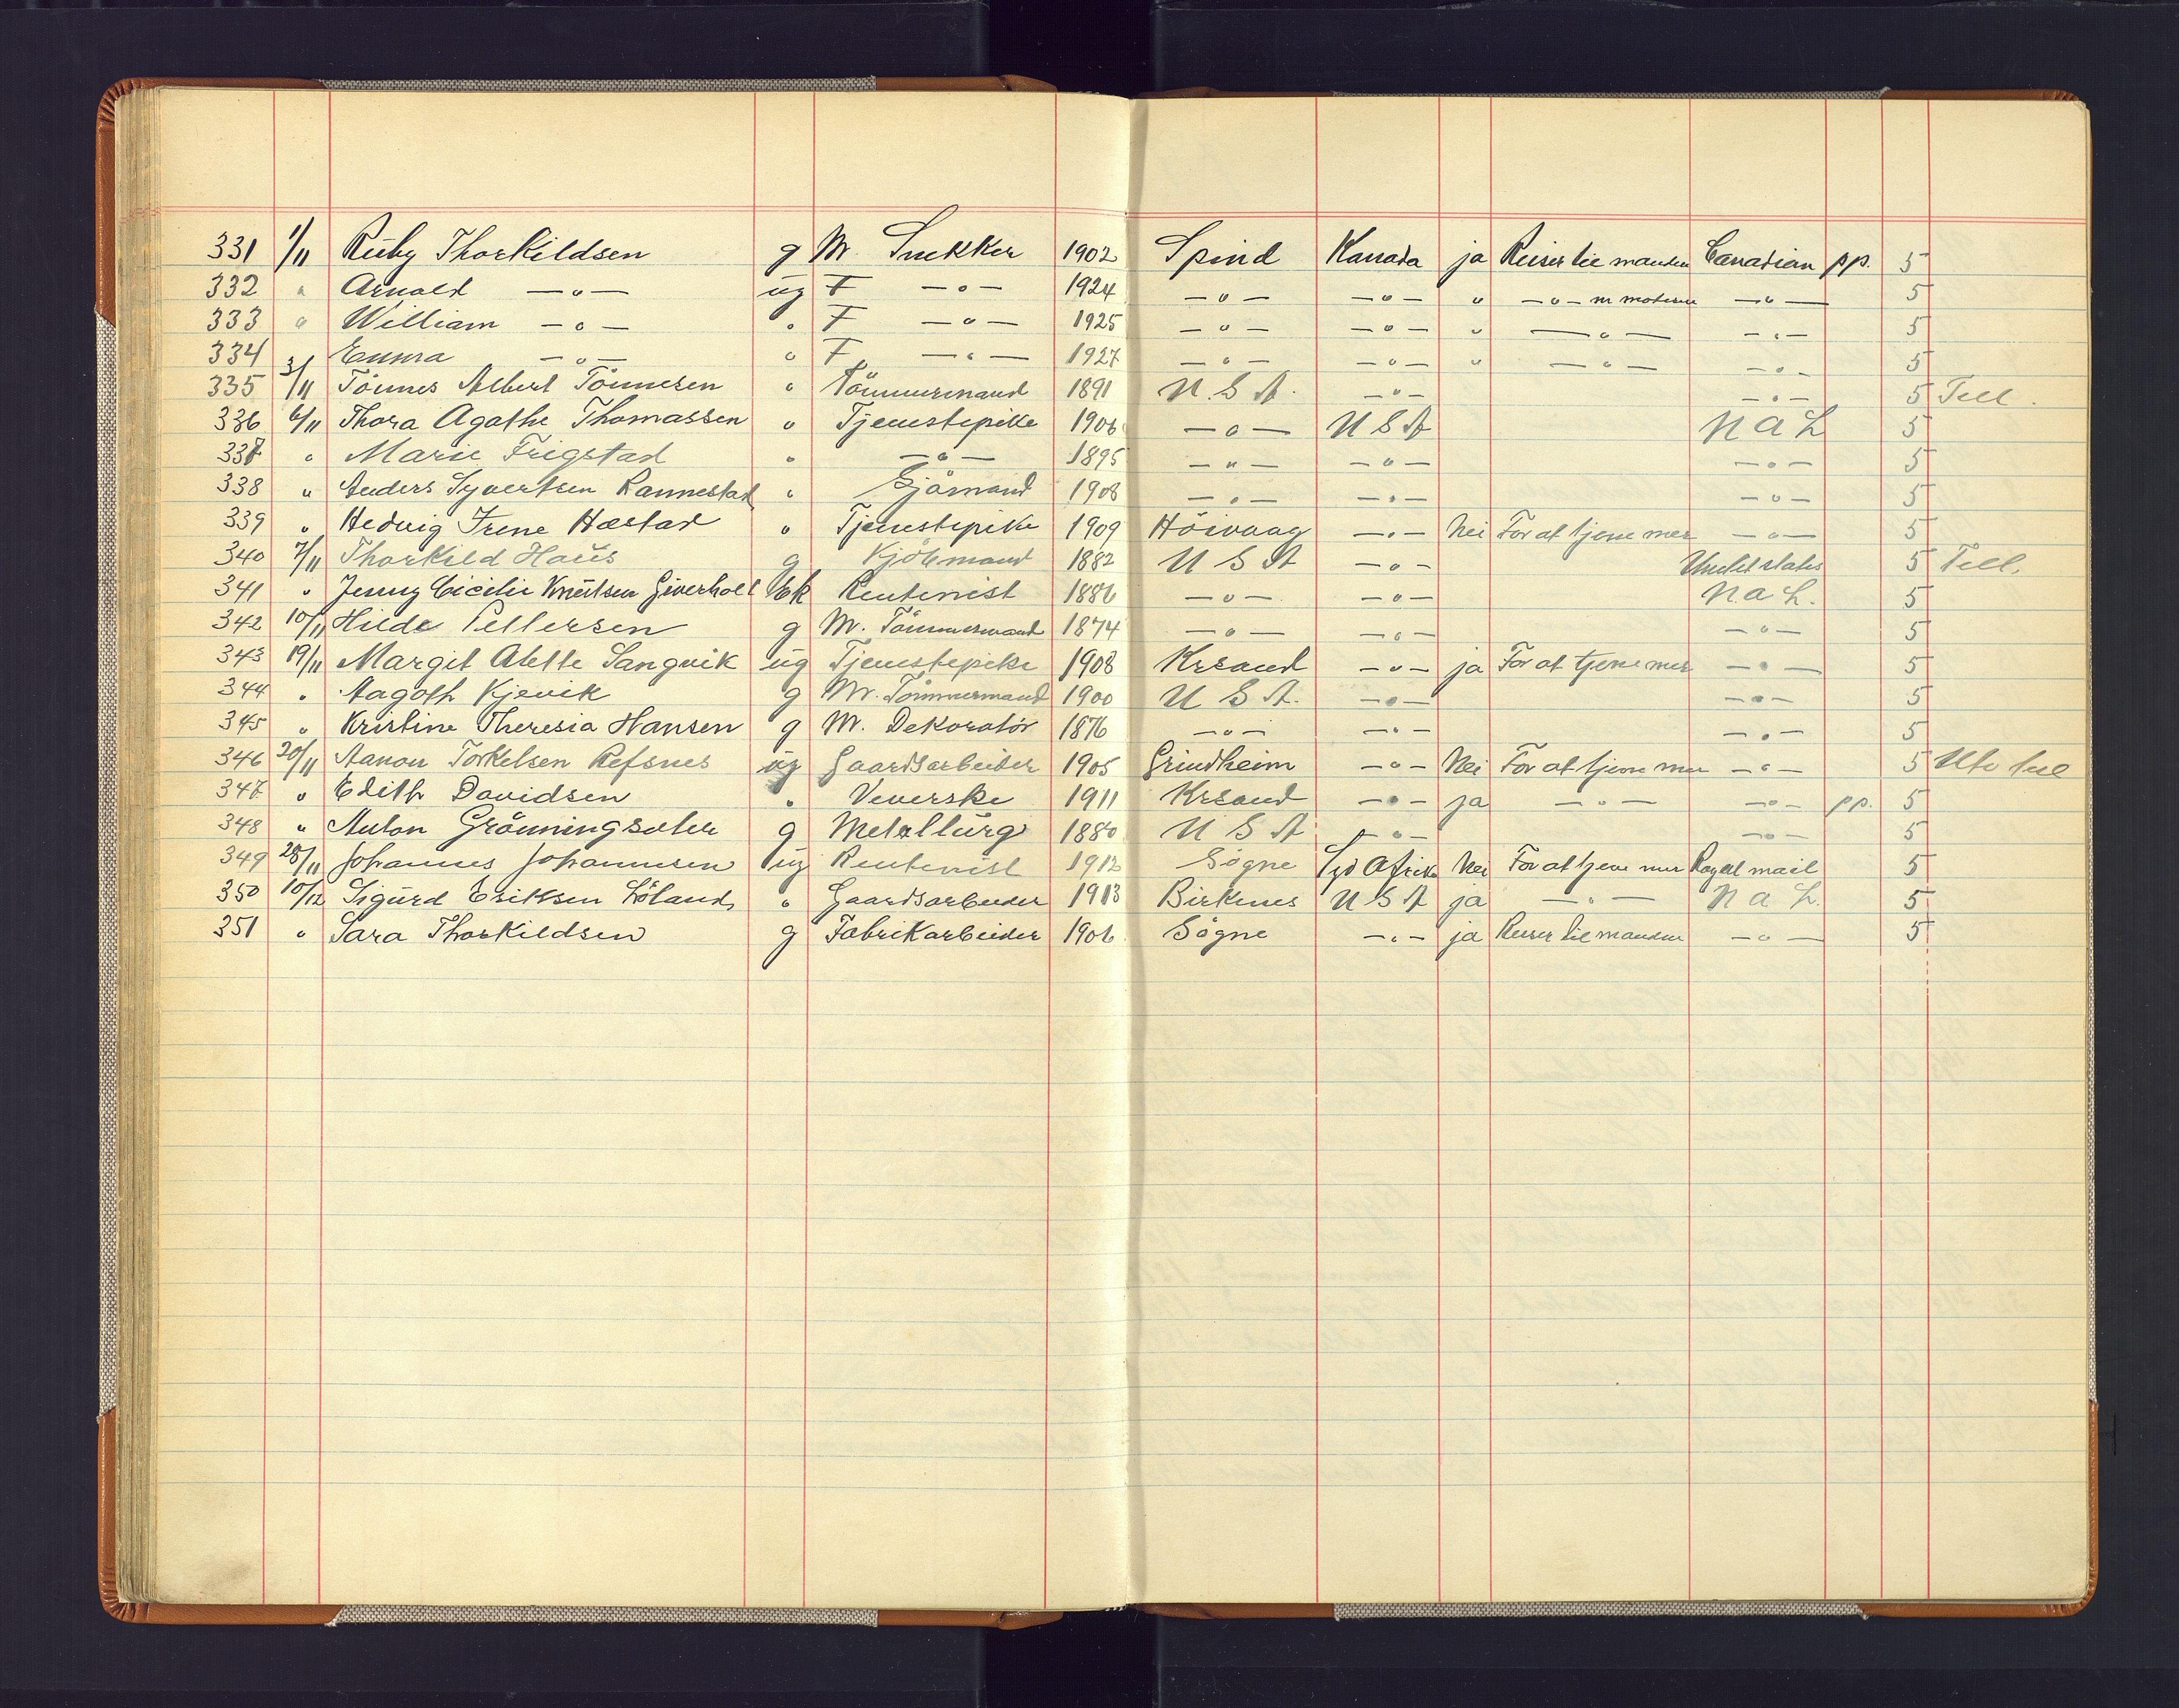 331 1/11 Ruby Thorkildsen g M. Snekker 1902 Spind Kanada ja Reiser til manden Canadian pp. 5
332 " Arnold —"— ug F —"— 1924 —"— —"— " —"— m moderen —"— 5
333 " William —"— " F —"— 1925 —"— —"— " —"— —"— 5
334 " Emma —"— " F —"— 1927 —"— —"— " —"— —"— 5
335 3/11 Tönnes Albert Tönnesen " Tömmermand 1891 U.S.A. —"— —"— 5 Till.
336 6/11 Thora Agathe Thomassen " Tjenstepike 1906 —"— U S A N A L 5
337 " Marie Frigstad " —"— 1895 —"— —"— —"— 5
338 " Anders Syvertsen Rannestad " Sjömand 1908 —"— —"— —"— 5
339 " Hedvig Irene Hæstad " Tjenstepike 1909 Höivaag —"— Nei For at tjene mer —"— 5
340 7/11 Thorkild Haus g Kjöbmand 1882 U S A —"— United states 5 Till.
341 " Jenny Cicilie Knutsen Giverholt Ek Rentenist 1886 —"— —"— N.A.L. 5
342 10/11 Hilda Pettersen g M. Tömmermand 1874 —"— —"— —"— 5
343 19/11 Margit Alette Langvik ug Tjenstepike 1908 Krsand —"— ja For at tjene mer —"— 5
344 " Aagoth Kjevik g M. Tömmermand 1900 U S A. —"— —"— 5
345 " Kristine Theresia Hansen g M. Dekoratör 1876 —"— —"— —"— 5
346 20/11 Aanon Torkelsen Refsnes ug Gaardsarbeider 1905 Grindheim —"— Nei For at tjene mer —"— 5
347 " Edith Davidsen " Veverske 1911 Krsand —"— ja —"— —"— pp. 5
348 " Anton Grönningsæter g Metallurg 1880 U S A —"— —"— 5
349 28/11 Johannes Johannesen ug Rentenist 1912 Sögne Syd Afrika Nei For at tjene mer Royal mail 5
350 10/12 Sigurd Eriksen Löland " Gaardsarbeider 1913 Birkenes U S A ja —"— N A L. 5
351 " Sara Thorkildsen g Fabrikarbeider 1906 Sögne —"— ja Reiser til manden —"— 5